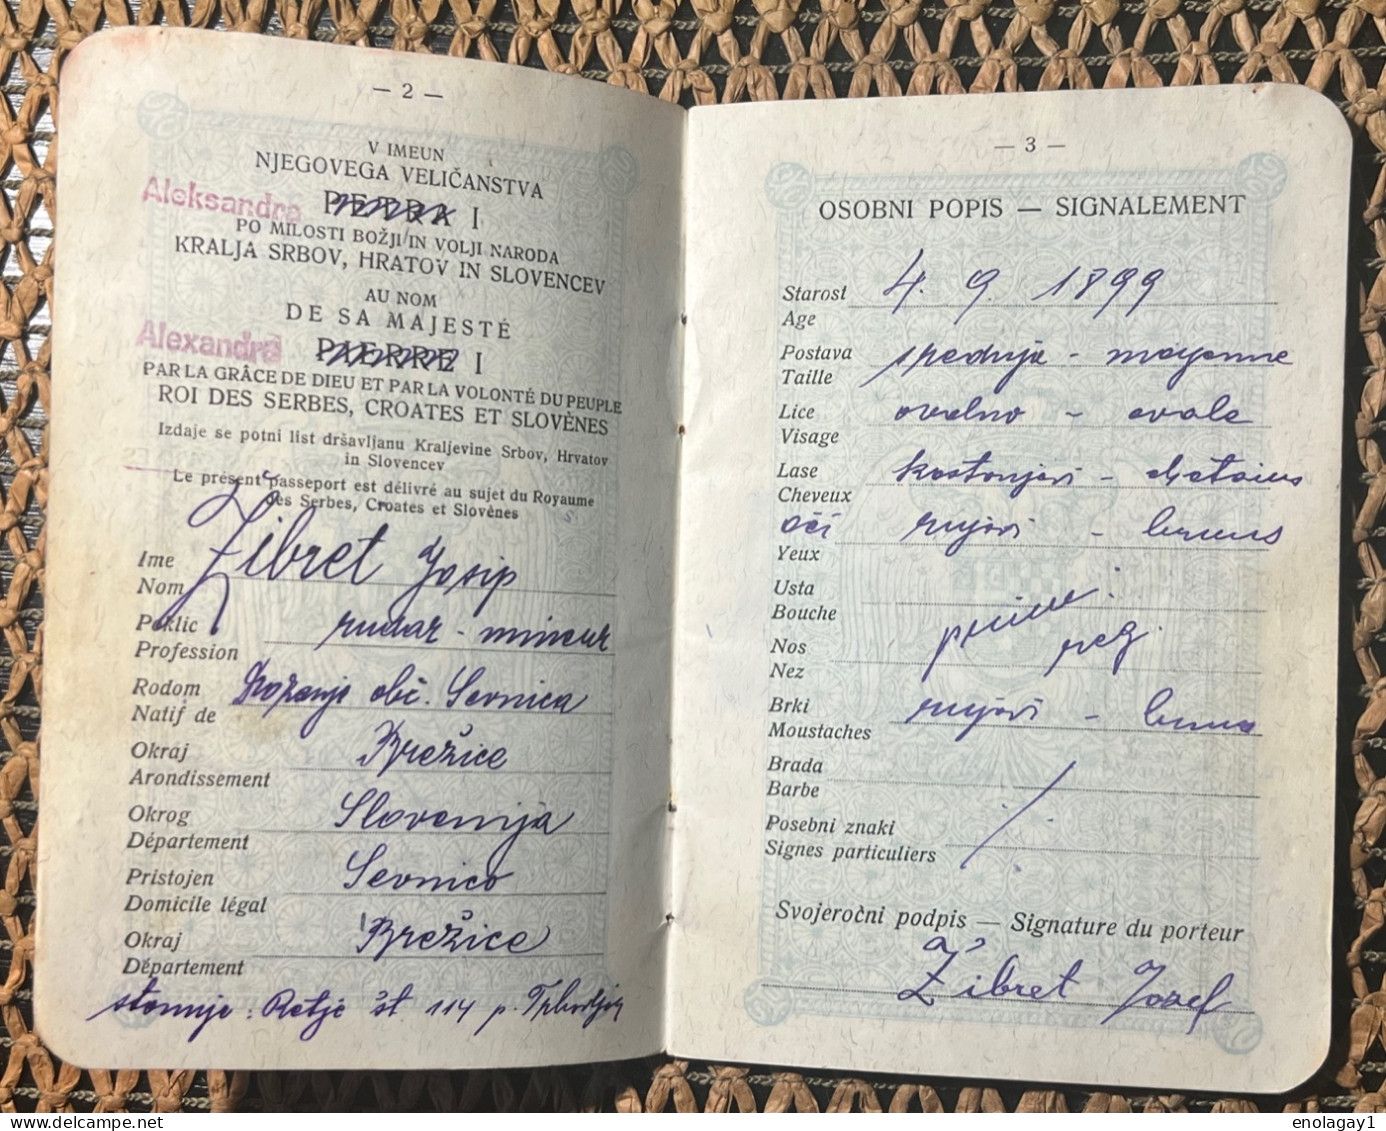 — 2 —
V IMEUN
NJEGOVEGA VELIČANSTVA
Aleksandra PETRA I
PO MILOSTI BOŽJI IN VOLJI NARODA
KRALJA SRBOV, HRATOV IN SLOVENCEV
AU NOM
DE SA MAJESTÉ
Alexandra PIERRE I
PAR LA GRÂCE DE DIEU ET PAR LA VOLONTÉ DU PEUPLE
ROI DES SERBES, CROATES ET SLOVÈNES
Izdaje se potni list dršavljanu Kraljevine Srbov, Hrvatov
in Slovencev
Le présent passeport est délivré au sujet du Royaume
des Serbes, Croates et Slovènes
Ime Žibret Josip
Nom
Poklic rudar - mineur
Profession
Rodom obč. Sevnica
Natif de
Okraj Brežice
Arondissement
Okrog Slovenija
Département
Pristojen Sevnico
Domicile légal
Okraj Brežice
Département
stanuje: Retje št 114 p.
— 3 —
OSOBNI POPIS — SIGNALEMENT
Starost 4. 9. 1899
Age
Postava srednja - moyenne
Taille
Lice ovalno - ovale
Visage
Lase kostanjevi - chatains
Cheveux
Oči rujavi - bruns
Yeux
Usta
Bouche
Nos reg.
Nez
Brki rujavi - bruns
Moustaches
Brada
Barbe
Posebni znaki
Signes particuliers
Svojeročni podpis — Signature du porteur
Žibret Jozef
enolagay1